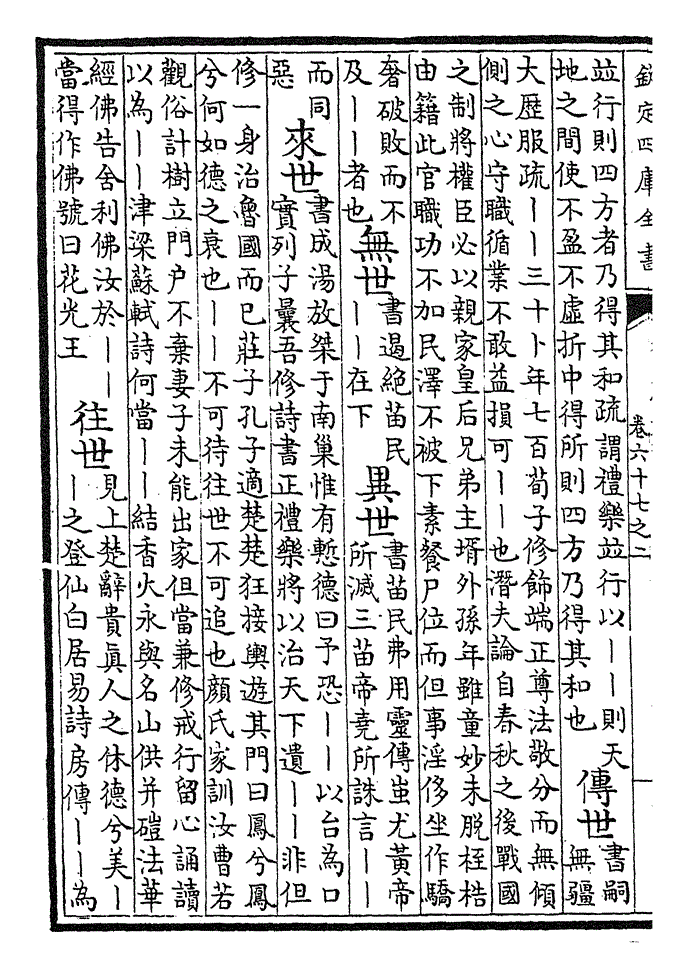 欽定四庫全書
卷六十七之二
竝行則四方者乃得其和疏謂禮樂竝行以丨丨則天
地之間使不盈不虛折中得所則四方乃得其和也
傳世
書嗣
無疆
大歷服疏丨丨三十卜年七百荀子修飾端正尊法敬分而無傾
側之心守職循業不敢益損可丨丨也潛夫論自春秋之後戰國
之制將權臣必以親家皇后兄弟主壻外孫年雖童妙未脫桎梏
由籍此官職功不加民澤不被下素餐尸位而但事淫侈坐作驕
奢破敗而不
及丨丨者也
無世
書遏絕苗民
丨丨在下
異世
書苗民弗用靈傳蚩尤黃帝
所滅三苗帝堯所誅言丨丨
而同
惡
來世
書成湯放桀于南巢惟有慙德曰予恐丨丨以台為口
實列子曩吾修詩書正禮樂將以治天下遺丨丨非但
修一身治魯國而已莊子孔子適楚楚狂接輿遊其門曰鳳兮鳳
兮何如德之衰也丨丨不可待往世不可追也顏氏家訓汝曹若
觀俗計樹立門户不棄妻子未能出家但當兼修戒行留心誦讀
以為丨丨津梁蘇軾詩何當丨丨結香火永與名山供井磑法華
經佛告舍利佛汝於丨丨
當得作佛號曰花光王
往世
見上楚辭貴眞人之休德兮美丨
丨之登仙白居易詩房傳丨丨為